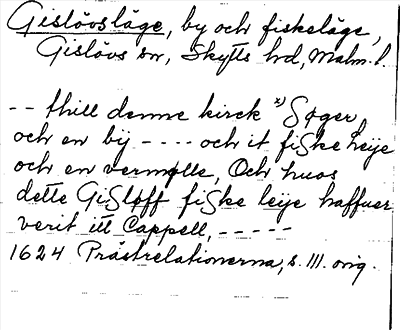 Gislövsläge, by och fiskeläge,
Gislövs sn, Skytts hd, Malm. l.
-- thill denne kirck *) Søger
och en bÿ ---- och it fiske leije
och en vermølle, Och huos
dette Gisløff fiske leije haffuer
verit itt Cappell, -----
1624 Prästrelationerna, s. 111. orig.